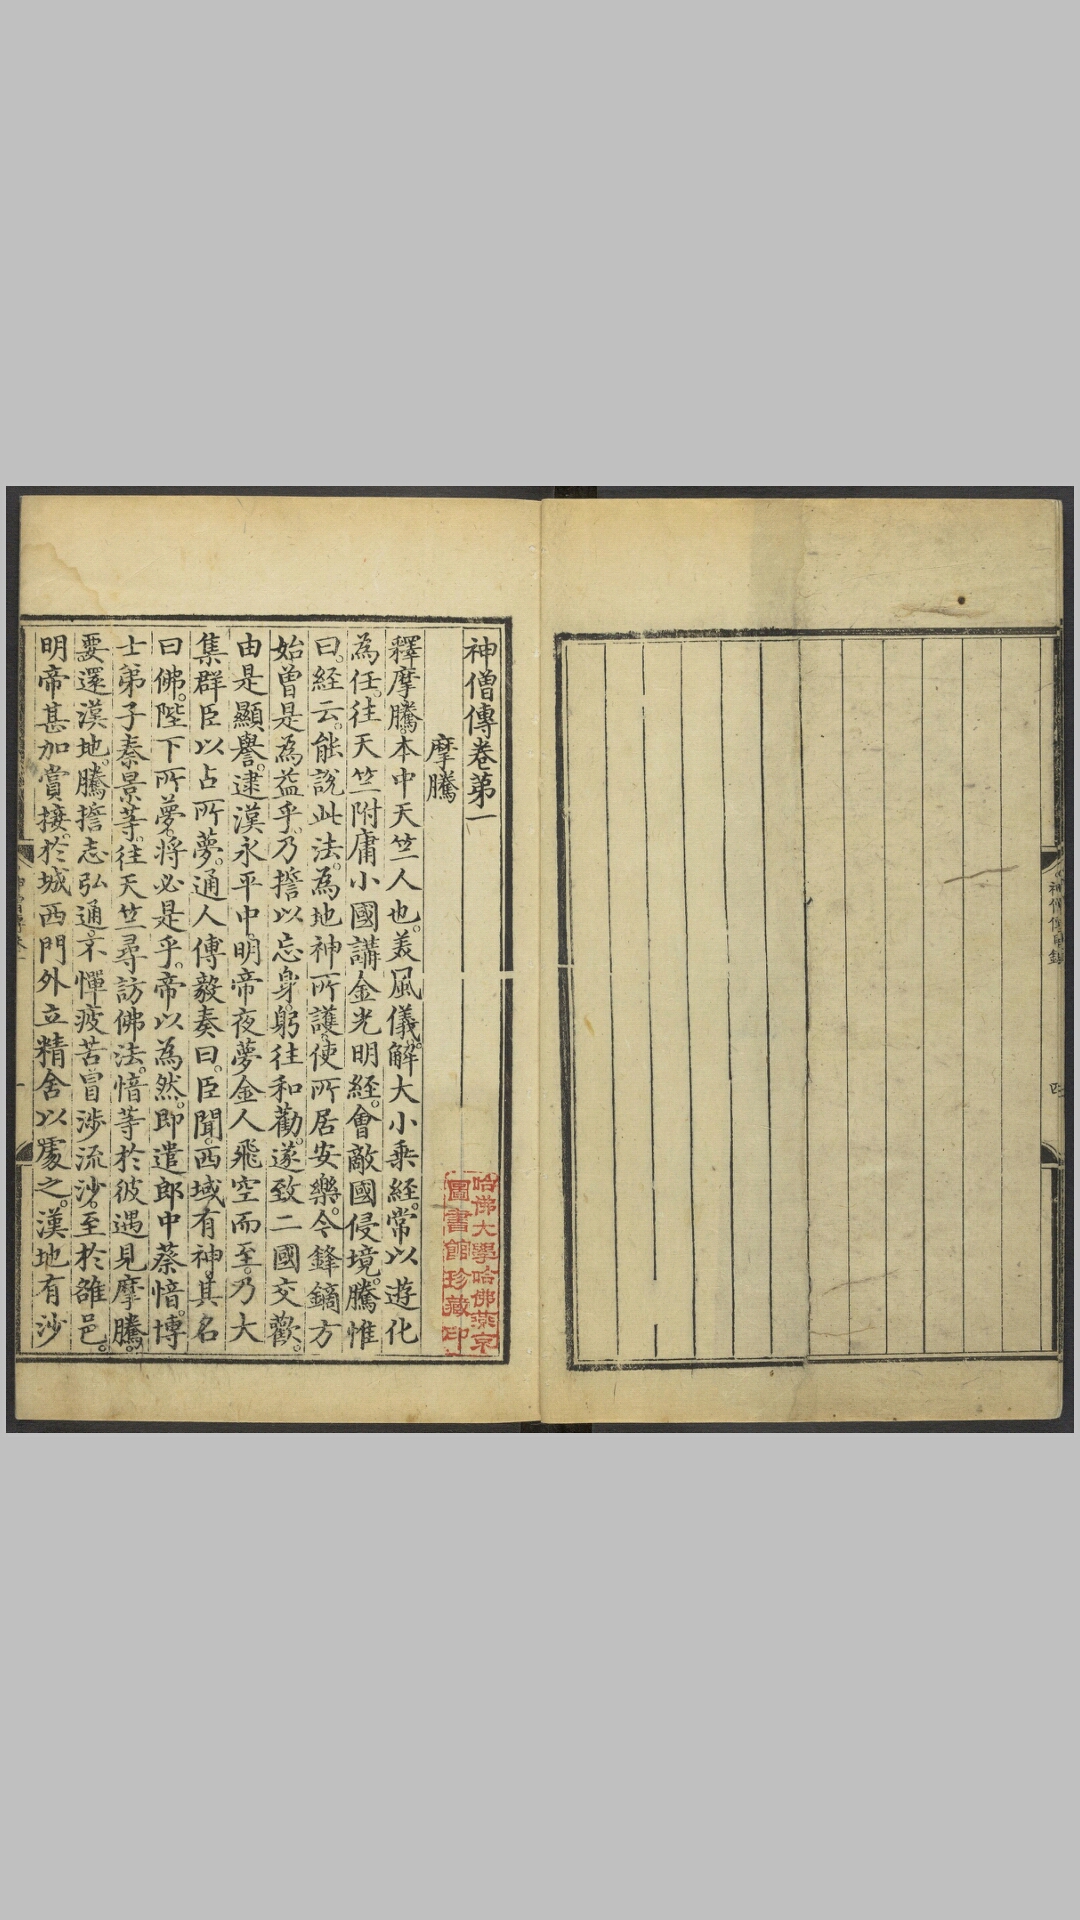 神僧傳目錄
四
神僧傳卷第一
摩騰
釋摩騰。本中天竺人也。美風儀。解大小乘經。常以遊化
為任。往天竺附庸小國講金光明經。會敵國侵境。騰惟
曰。經云。能說此法。為地神所護。使所居安樂。今鋒鏑方
始。曾是為益乎。乃誓以忘身。躬往和勸。遂致二國交歡。
由是顯譽。逮漢永平中。明帝夜夢金人飛空而至。乃大
集群臣以占所夢。通人傅毅奏曰。臣聞。西域有神。其名
曰佛。陛下所夢。將必是乎。帝以為然。即遣郎中蔡愔。博
士弟子秦景等。往天竺尋訪佛法。愔等於彼遇見摩騰。
要還漢地。騰誓志弘通。不憚疲苦。冒涉流沙。至於雒邑。
明帝甚加賞接。於城西門外立精舍以處之。漢地有沙
哈佛大學哈佛燕京
圖書館珍藏印